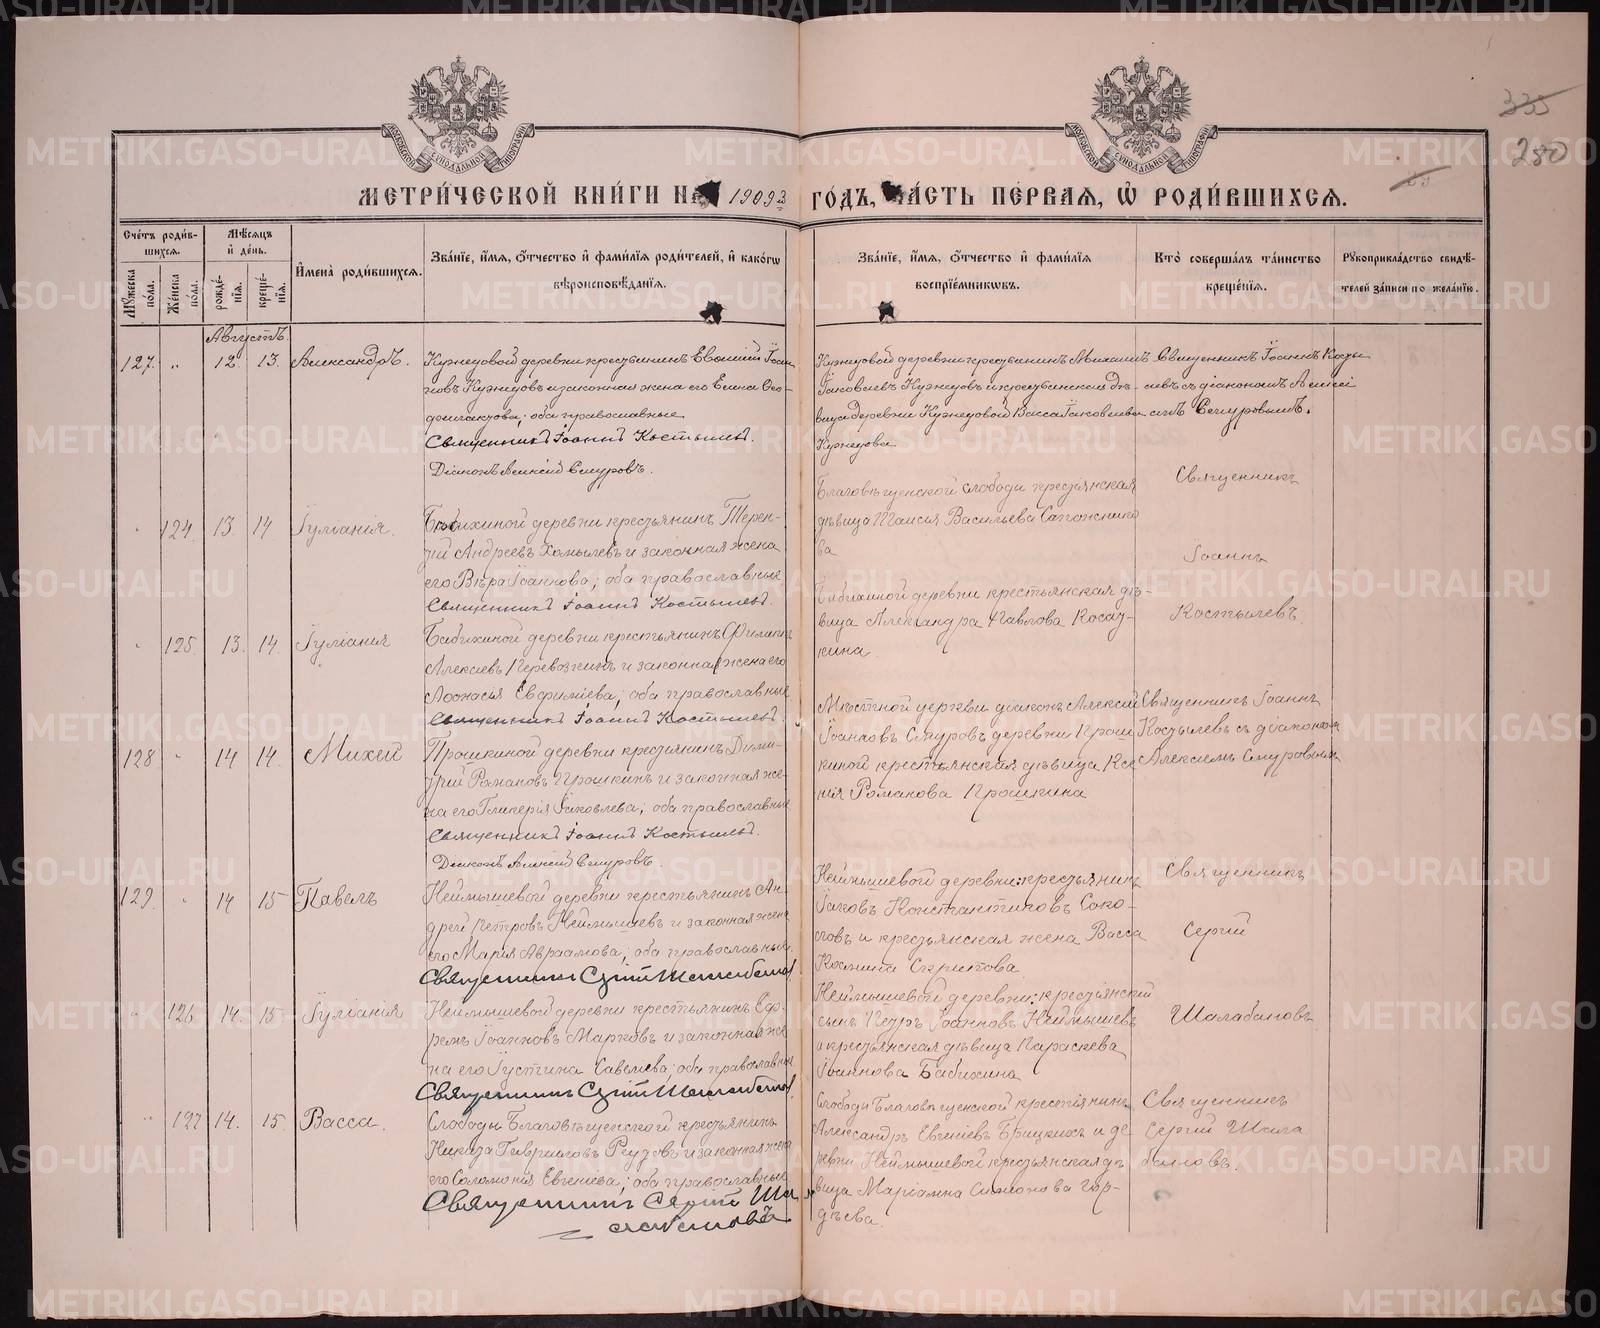 335
280
МОСКОВСКОЙ СѴНОДАЛЬНОЙ ТИПОГРАФІИ
МОСКОВСКОЙ СѴНОДАЛЬНОЙ ТИПОГРАФІИ
МЕТРИ́ЧЕСКОЙ КНИ́ГИ НА 1909 ГО́ДЪ, ЧА́СТЬ ПЕ́РВАѦ, Ѽ РОДИ́ВШИХСѦ.
Сче́тъ роди́в-
шихсѧ.
Му́жеска по́ла.
Же́нска по́ла.
Мѣ́сѧцъ
и҆ де́нь.
рожде́-
нїѧ.
креще́-
нїѧ.
И҆мена̀ роди́вшихсѧ.
Зва́нїе, и҆́мѧ, ѻ҆́тчество и҆ фами́лїѧ роди́телей, и҆ како́гѡ
вѣроисповѣ́данїѧ.
Зва́нїе, и҆́мѧ, ѻ҆́тчество и҆ фами́лїѧ
воспрїе́мникѡвъ.
Кто̀ соверша́лъ та́инство
креще́нїѧ.
Рꙋкоприкла́дство свидѣ́-
телей за́писи по жела́нїю.
Августъ.
127. „ 12. 13. Александръ.
Кузнецовой деревни крестьянинъ Евѳимій Іоан-
новъ Кузнецовъ и законная жена его Елена Ѳео-
филактова; оба православные
Священникъ Іоаннъ Костылевъ.
Діаконъ Алексій Смуровъ.
Кузнецовой деревни крестьянинъ Михаилъ
Іаковлевъ Кузнецовъ и крестьянская дѣ-
вица деревни Кузнецовой Васса Іаковлева
Кузнецова
Священникъ Іоаннъ Косты-
левъ съ діакономъ Алексі-
емъ Смуровымъ.
124. 13. 14 Іуліанія.
Бабихиной деревни крестьянинъ Терен-
тій Андреевъ и законная жена
его Вѣра Іоаннова; оба православные
Священникъ Іоаннъ Костылевъ.
Благовѣщенской слободы крестьянская
дѣвица Таисія Васильева Сапожнико-
ва
Священникъ
Іоаннъ
Костылевъ.
125. 13. 14. Іуліанія
Бабихиной деревни крестьянинъ Филиппъ
Алексіевъ Перевозкинъ и законная жена его
Аѳанасія Евфиміева; оба православные
Священникъ Іоаннъ Костылевъ.
Бабихиной деревни крестьянская дѣ-
вица Александра Павлова Косау-
кина.
128 14 14. Михей
Прошкиной деревни крестьянинъ Дими-
трій Романовъ Прошкинъ и законная же-
на его Гликерія Іаковлева; оба православные
Священникъ Іоаннъ Костылевъ.
Діаконъ Алексій Смуровъ.
Мѣстной церкви діаконъ Алексій
Іоанновъ Смуровъ деревни Прош-
киной крестьянская дѣвица Ксе-
нія Романова Прошкина
Священникъ Іоаннъ
Костылевъ съ діакономъ
Алексіемъ Смуровымъ
129. 14 15 Павелъ
Неймышевой деревни крестьянинъ Ан-
дрей Петровъ Неймышевъ и законная жена
его Марія Авраамова; оба православные.
Священникъ Сергій Шалабановъ
Неймышевой деревни: крестьянинъ
Іаковъ Константиновъ Соко-
ловъ и крестьянская жена Васса
Космина Скрипова
Священникъ
Сергій
Шалабановъ.
126 14. 15. Іуліанія
Неймышевой деревни крестьянинъ Еф-
ремъ Іоанновъ Марковъ и законная же-
на его Іустина Савелиева; оба православные
Священникъ Сергій Шалабановъ
Неймышевой деревни: крестьянскій
сынъ Петръ Іоанновъ Неймышевъ
и крестьянская дѣвица Параскева
Іоаннова Бабихина
127 14. 15. Васса.
Слободы Благовѣщенской крестьянинъ
Никита Гавриловъ Реутовъ и законная жена
его Соломонія Евгеніева; оба православные
Священникъ Сергій Ша-
лабановъ
Слободы Благовѣщенской крестьянинъ
Александръ Евгеніевъ Брицкихъ и де-
ревни Неймышевой крестьянская дѣ-
вица Маріамна Симонова Гор-
дѣева.
Священникъ
Сергій Шала-
бановъ.